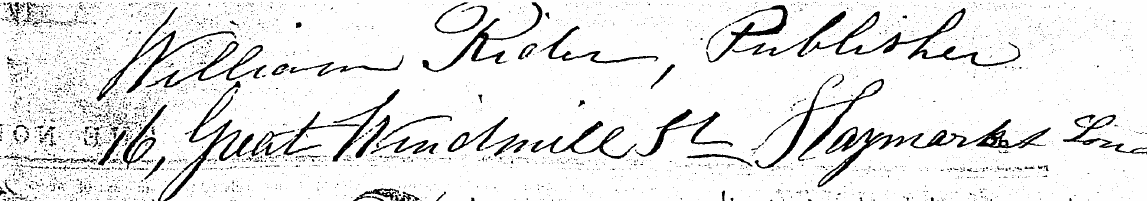 William Rider, Publisher
16, Great Windmill St Haymarket Lond